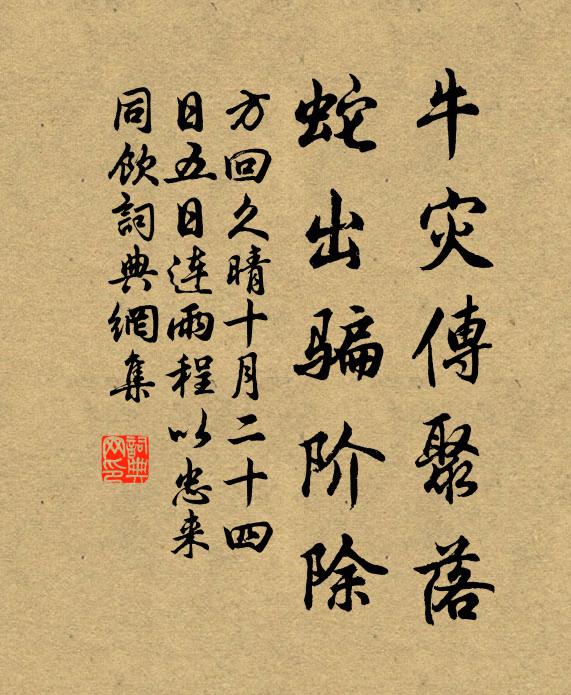 牛灾傳聚落
蛇出骗阶除
方回久晴十月二十四
日五日连雨程以忠来
同饮詞典網集
詞典网印